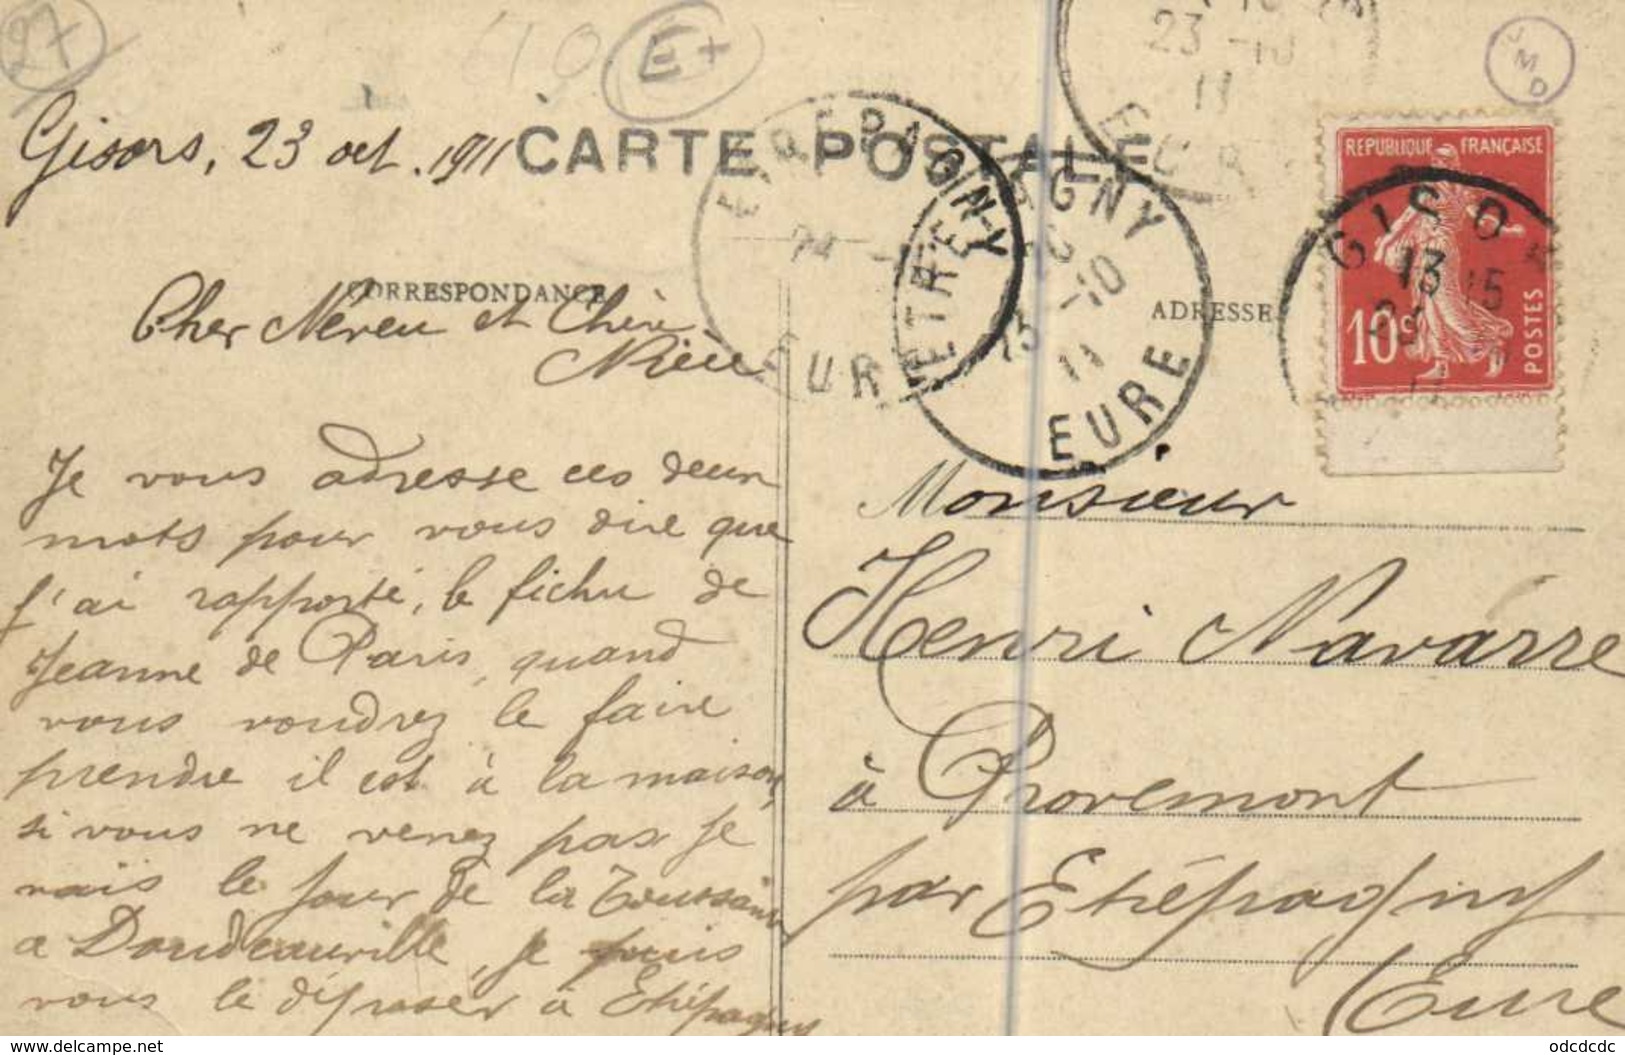 27
E+
JMD
Gisors, 23 oct. 1911
CARTE POSTALE
23 -10
11
EUR
ETREPAGNY
24
EUR
ETREPAGNY
23 -10
11
EURE
REPUBLIQUE FRANÇAISE
10c
POSTES
GISORS
13 15
CORRESPONDANCE
ADRESSE
Cher Neveu et Chère
Nièce
Je vous adresse ces deux
mots pour vous dire que
j'ai rapporté, le fichu de
Jeanne de Paris, quand
vous voudrez le faire
prendre il est à la maison,
si vous ne venez pas je
vais le jour de la Toussaint
a Doudeauville, je puis
vous le déposer à Etrépagny
Monsieur
Henri Navarre
à Provemont
par Etrépagny
Eure
www.delcampe.net
odcdcdc